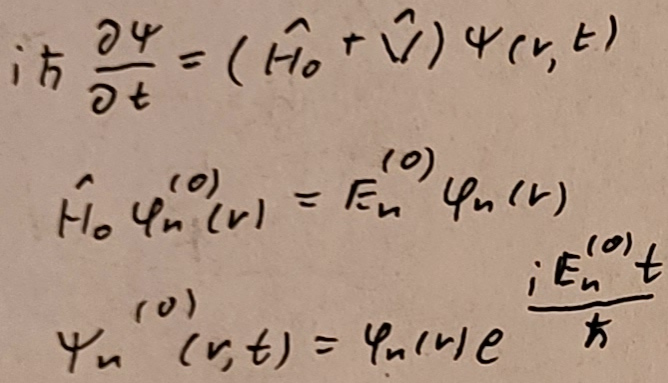 iℏ ∂Ψ/∂t = (Ĥ₀ + V̂) Ψ(r, t)
Ĥ₀ φₙ⁽⁰⁾(r) = Eₙ⁽⁰⁾ φₙ(r)
Ψₙ⁽⁰⁾(r, t) = φₙ(r) e^(i Eₙ⁽⁰⁾ t / ℏ)